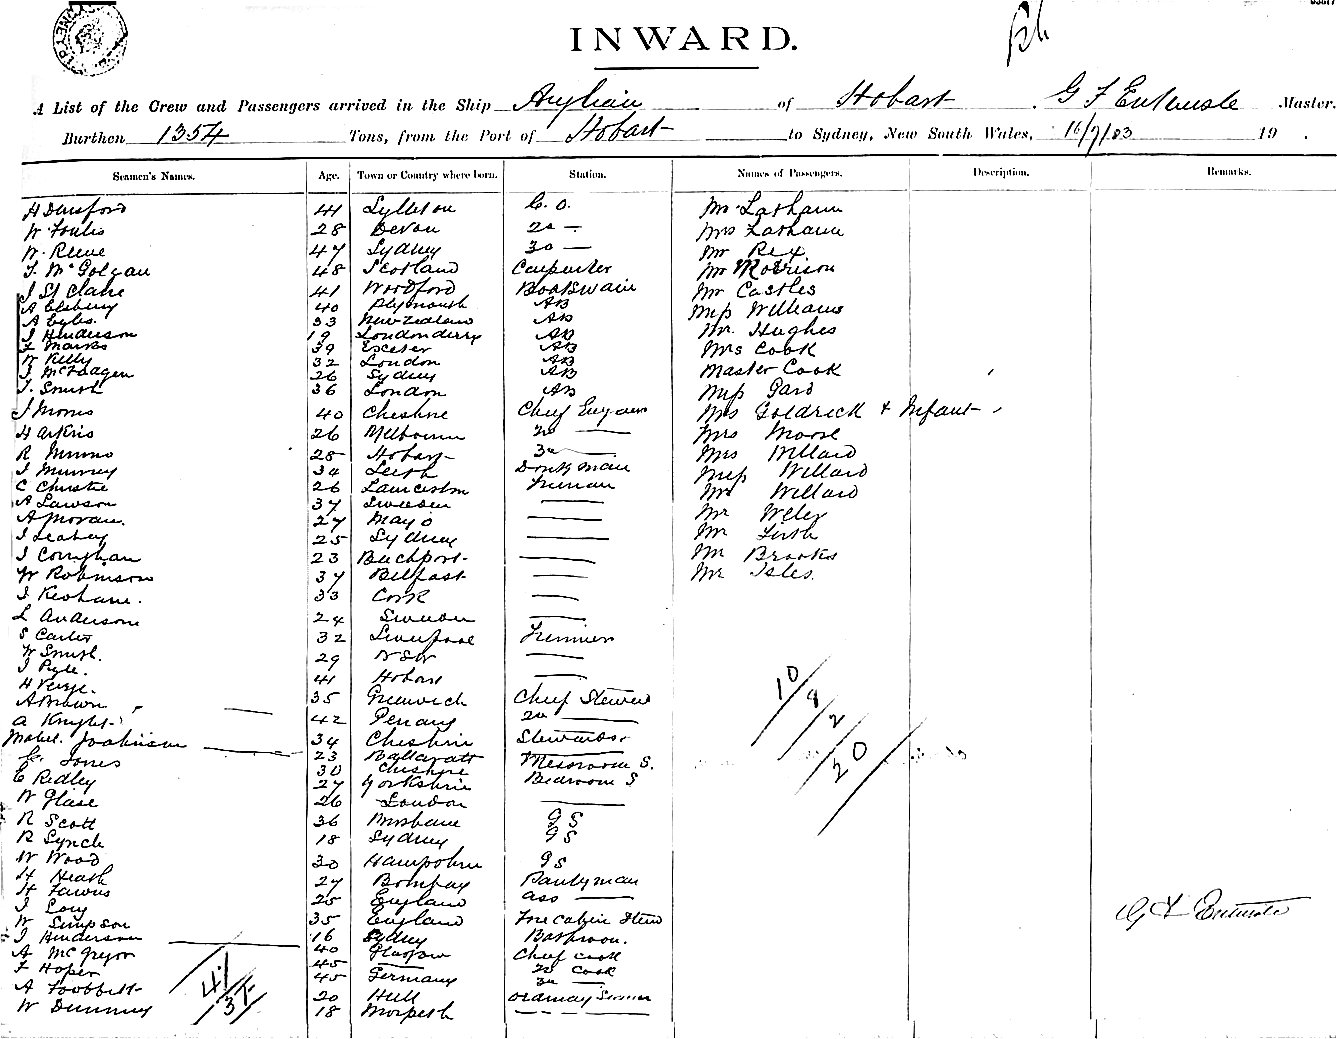 INWARD.
A List of the Crew and Passengers arrived in the Ship Anglian of Hobart. G F Entwisle Master.
Burthen 1354 Tons, from the Port of Hobart to Sydney, New South Wales, 16/7/03 19 .
Seamen's Names. Age. Town or Country where born. Station. Names of Passengers. Description. Remarks.
H 41 Lyttleton C. O. Mr Latham
W Foulis 28 Devon 2o — Mrs Latham
W. Reeve 47 Sydney 3o — Mr Rex.
T. McGolgan 48 Scotland Carpenter Mr Morrison
J St Claire 41 Woodford Boatswain Mr Castles
A 40 Plymouth AB Miss Williams
A Eyles. 33 New Zealand AB Mr. Hughes
J Henderson 19 Londonderry AB
F Marks 39 Exeter AB Mrs Cook
W Kelly 32 London AB
J McFadgen 26 Sydney AB Master Cook
J. Smith 36 London AB Miss Gard
J Morris 40 Cheshire Chief Engineer Mrs Goldrick + Infant
H Atkins 26 Melbourne 2o — Mrs Moore
R Munro 28 Hobart 3o — Mrs Willard
J Murray 34 Leith Donkeyman Miss Willard
C Christie 26 Launceston Fireman Mr Willard
A Lawson 37 Sweden —
A Moran. 27 Mayo — Mr
J Leahey 25 Sydney — Mr Firth
J Corrigham 23 — Mr Brooks
W Robinson 37 Belfast — Mr Isles.
J Keohane. 33 Cork —
L Anderson 24 Sweden —
S Carter 32 Liverpool Trimmer
W Smith. 29 NSW —
J Pyle. 41 Hobart —
H
A Brown 35 Greenwich Chief Steward
A Knight 42 Penang 2o —
Mabel. Joahinson 34 Cheshire Stewardess
Jones 23 Ballaratt Messroom S.
E Ridley 30 Cheshire Bedroom S
27 Yorkshire
W Glase 26 London —
R Scott 36 Brisbane G S
R Lynch 18 Sydney G S
W Wood 30 Hampshire G S
H Heath 27 Bombay Pantryman
H Fawns 25 England ass —
J Lory
W Simpson 35 England Fore Cabin Stew
J Henderson 16 Sydney Bathroom.
A McGregor 40 Glasgow Chief Cook
F Hoper 45 — 2o Cook
A 45 Germany 3o —
20 Hull Ordinary
W 18 Morpeth —
10/8/2/20
41/3F
G F Entwisle